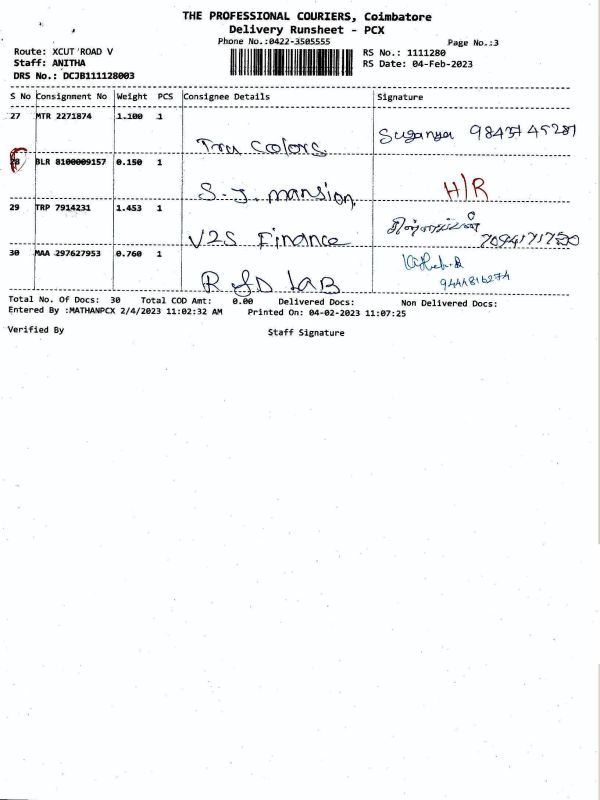 THE PROFESSIONAL COURIERS, Coimbatore
Delivery Runsheet - PCX
Phone No.:0422-3505555 Page No.:3
Route: XCUT ROAD V RS No.: 1111280
Staff: ANITHA RS Date: 04-Feb-2023
DRS No.: DCJB111128003
S No Consignment No Weight PCS Consignee Details Signature
27 MTR 2271874 1.100 1
Tru Colors Suganya
28 BLR 8100009157 0.150 1
S.J. mansion H/R
29 TRP 7914231 1.453 1
V2S Finance
30 MAA 297627953 0.760 1
R & D LAB 9444816274
Total No. Of Docs: 30 Total COD Amt: 0.00 Delivered Docs: Non Delivered Docs:
Entered By :MATHANPCX 2/4/2023 11:02:32 AM Printed On: 04-02-2023 11:07:25
Verified By Staff Signature